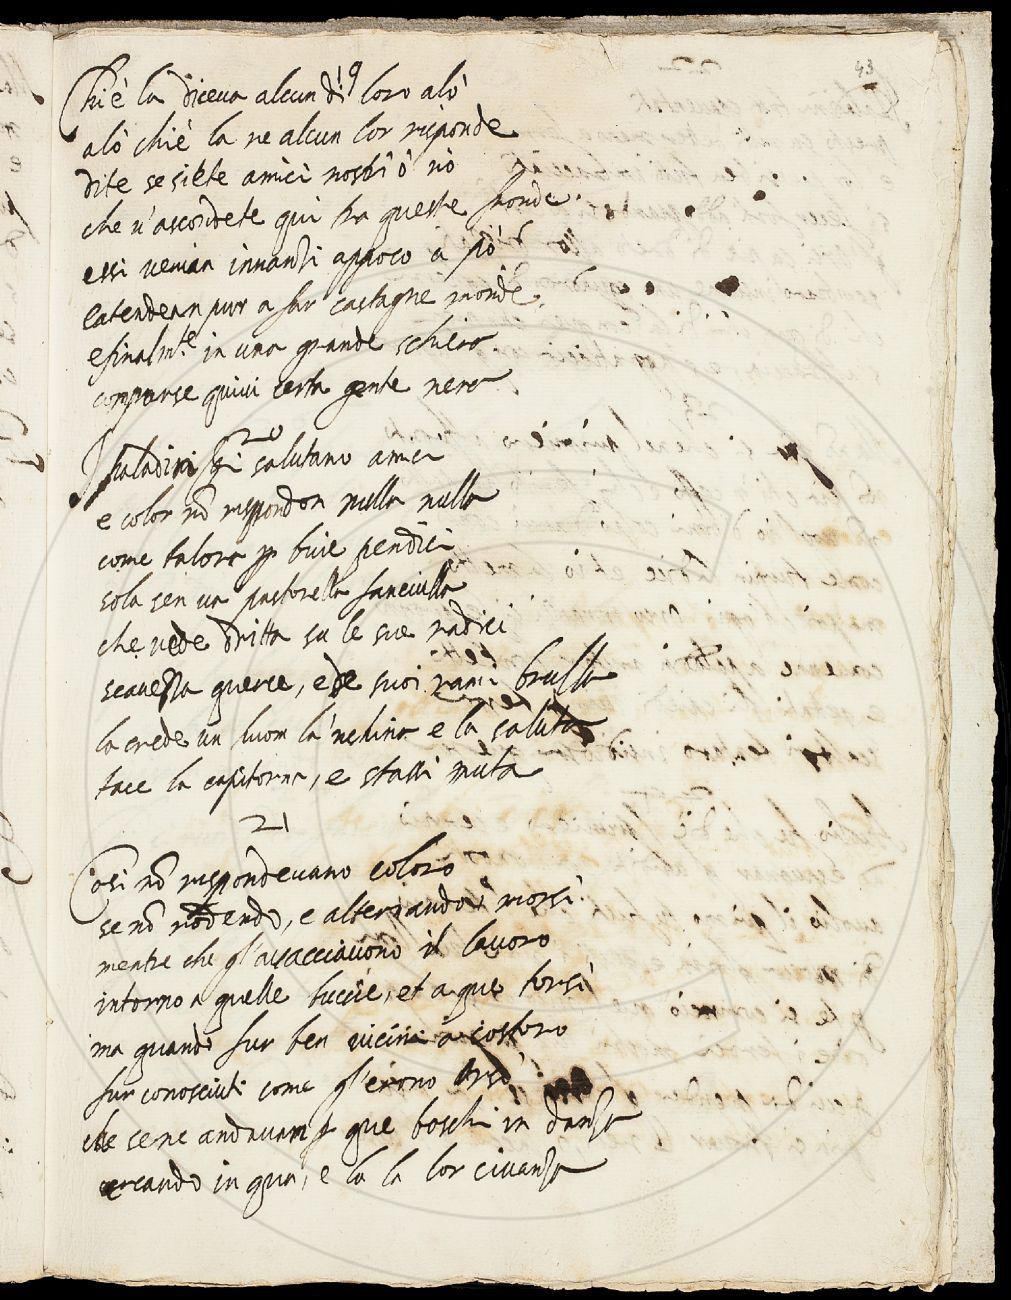 43
19
Chi è la diceua alcun di loro alò
alò chi è la ne alcun lor risponde
dite se siete amici nostri ò nò
che u'ascondete qui tra queste fronde
essi uenian innanzi appoco a pò
e atendean pur a far castagne monde
e finalm.te in una grande schiera
comparse quiui certa gente nera
20
I paladini gli salutano amici
e color nõ rispondon nulla nulla
come talora p buie pendici
sola sen ua pastorella fanciulla
che uede dritta su le sue radici
scauezza querce, e de suoi rami brulla
la crede un huom la 'nchina e la saluta
tace la capitorza, e stassi muta
21
Cosi nõ rispondeuano coloro
se nõ rodendo, e alternando i morsi
mentre che gl'auacciauono il lauoro
intorno a quelle buccie, et a que torsi
ma quando fur ben uicini a costoro
fur conosciuti come gl'erono orsi
che se ne andauam p que boschi in danza
cercando in qua, e la la lor ciuanza